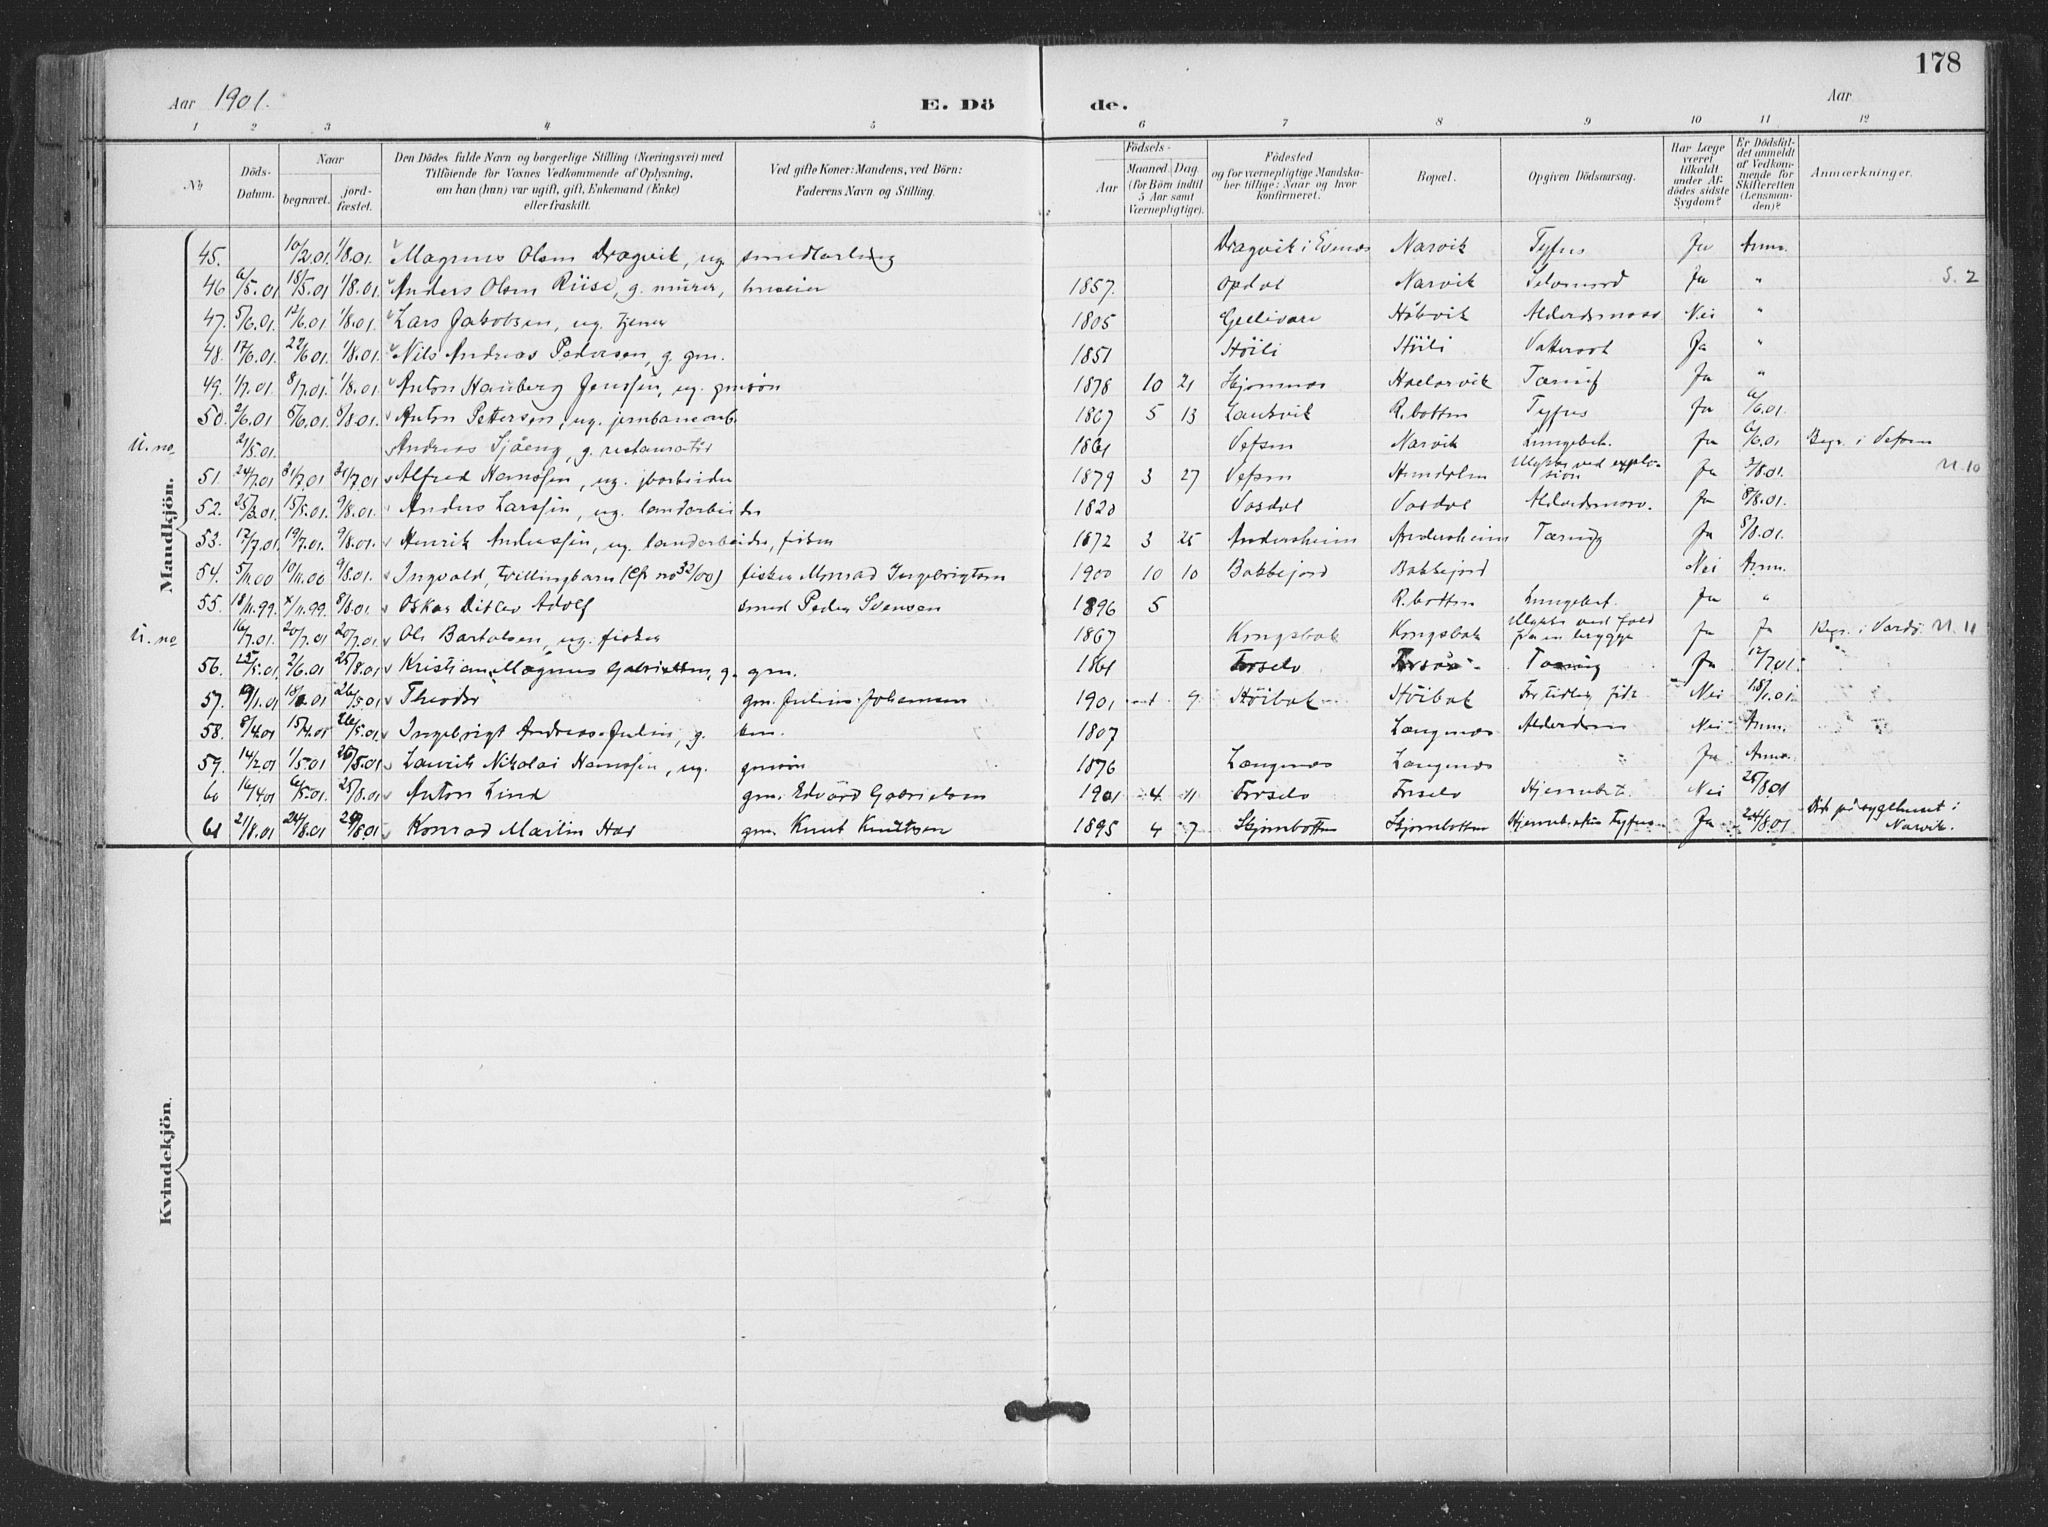 178
Aar 1901.
E. Dö de.
Aar
1 2 3 4 5 6 7 8 9 10 11 12
No
Döds-Datum.
Naar
begravet.
jord-fæstet.
Den Dödes fulde Navn og borgerlige Stilling (Næringsvei) med
Tilföiende for Voxnes Vedkommende af Oplysning,
om han (hun) var ugift, gift, Enkemand (Enke)
eller fraskilt.
Ved gifte Koner: Mandens, ved Börn:
Faderens Navn og Stilling.
Födsels-
Aar
Maaned. Dag.
(for Börn indtil
5 Aar samt
Værnepligtige).
Födested
og for værnepligtige Mandska-
ber tillige: Naar og hvor
konfirmeret.
Bopæl.
Opgiven Dödsaarsag.
Har Læge
været
tilkaldt
under Af-
dödes sidste
Sygdom?
Er Dödsfal-
det anmeldt
af Vedkom-
mende for
Skifteretten
(Lensman-
den)?
Anmærkninger.
Mandkjön.
45. 10/2.01. 1/8.01. Magnus Olsen Dragvik, ug. smedlærling Dragvik i Evenes Narvik Tyfus Ja Anm.
46 6/5.01 15/5.01 1/8.01. Anders Olsen Riise, g. murer, 1857. Opdal Narvik Selvmord Ja " S. 2
47. 5/6.01. 12/6.01. 1/8.01. Lars Jakobsen, ug. tjener 1805 Gellivare Håkvik Nei "
48. 17/6.01. 27/6.01. 1/8.01. Nils Andreas Pedersen, g. gm. 1851 Höili Höili Vattersot Ja "
49. 1/7.01 8/7.01. 1/8.01. Anton Hauberg Jenssen, ug. gmsön 1878 10 21 Skjomnes Tæring Ja "
50. 2/6.01. 5/6.01. 8/8.01. Anton Pettersen, ug. jernbanearb. 1867 5 13 R.botten Tyfus Ja 6/6.01.
U. no 21/5.01. Andreas Sjåeng, g. restauratör 1861 Vefsen Narvik Lungebet. Ja 6/6.01 Begr. i Vefsen
51. 24/7.01 31/7.01 31/7.01 Alfred Hanssen, ug. jbarbeider 1879 3 27 Vefsen Hundalen Ulykke ved explo-sion Ja 3/8.01. U. 10
52. 15/8.01. 9/8.01. Anders Larssen, ug. landarbeider 1820 Vasdal Vasdal Ja 8/8.01.
53. 12/7.01. 19/7.01. 9/8.01. Henrik Anderssen, ug. landarbeider, fisker 1872 3 25 Andersheim Andersheim Tæring Ja 8/8.01.
54. 5/11.00 10/11.00 9/8.01. Ingvald, tvillingbarn (cfr no 32/00) fisker Monrad Ingebrigtsen 1900 10 10 Bakkejord Bakkejord Nei Anm.
55. 18/11.99. /11.99. 8/8.01. Oskar Ditlev Adolf smed Peder Svensen 1896 5 R.botten Lungebet. Ja "
U. no 16/7.01. 20/7.01 20/7.01 Ole Bartolsen, ug. fisker 1867 Kongsbak Kongsbak Ulykke ved fald fra en brygge Ja Ja Begr. i Vardö. U. 11
56. 25/5.01 2/6.01 25/8.01 Kristian Magnus Gabrielsen, g. gm. 1861 Forselv Tæring Ja 12/7.01
57. 19/1.01 26/5.01 Theodor gm. Julius Johansen 1901 1 9 Höibak Höibak For tidlig födt Nei 18/1.01
58. 8/4.01 15/4.01 26/5.01. Ingebrigt Andreas Julin, g. 1807 Langenes Alderdom Nei Anm.
59. 14/2.01 1/5.01 26/5.01 Laurits Nikolai Hanssen, ug. gmsön 1876 Langenes Langenes Ja Anm.
60 16/4.01 6/5.01. 25/8.01. Anton Lind gm. Edvard Gabrielsen 1901 4 11 Forselv Forselv Hjernebet. Nei 25/8.01
61 21/8.01 24/8.01 /8.01 Konrad Martin gm. Knut Knutsen 1895 4 7 Skjombotten Skjombotten Ja 24/8.01 Död på sygehuset i Narvik.
Kvindekjön.